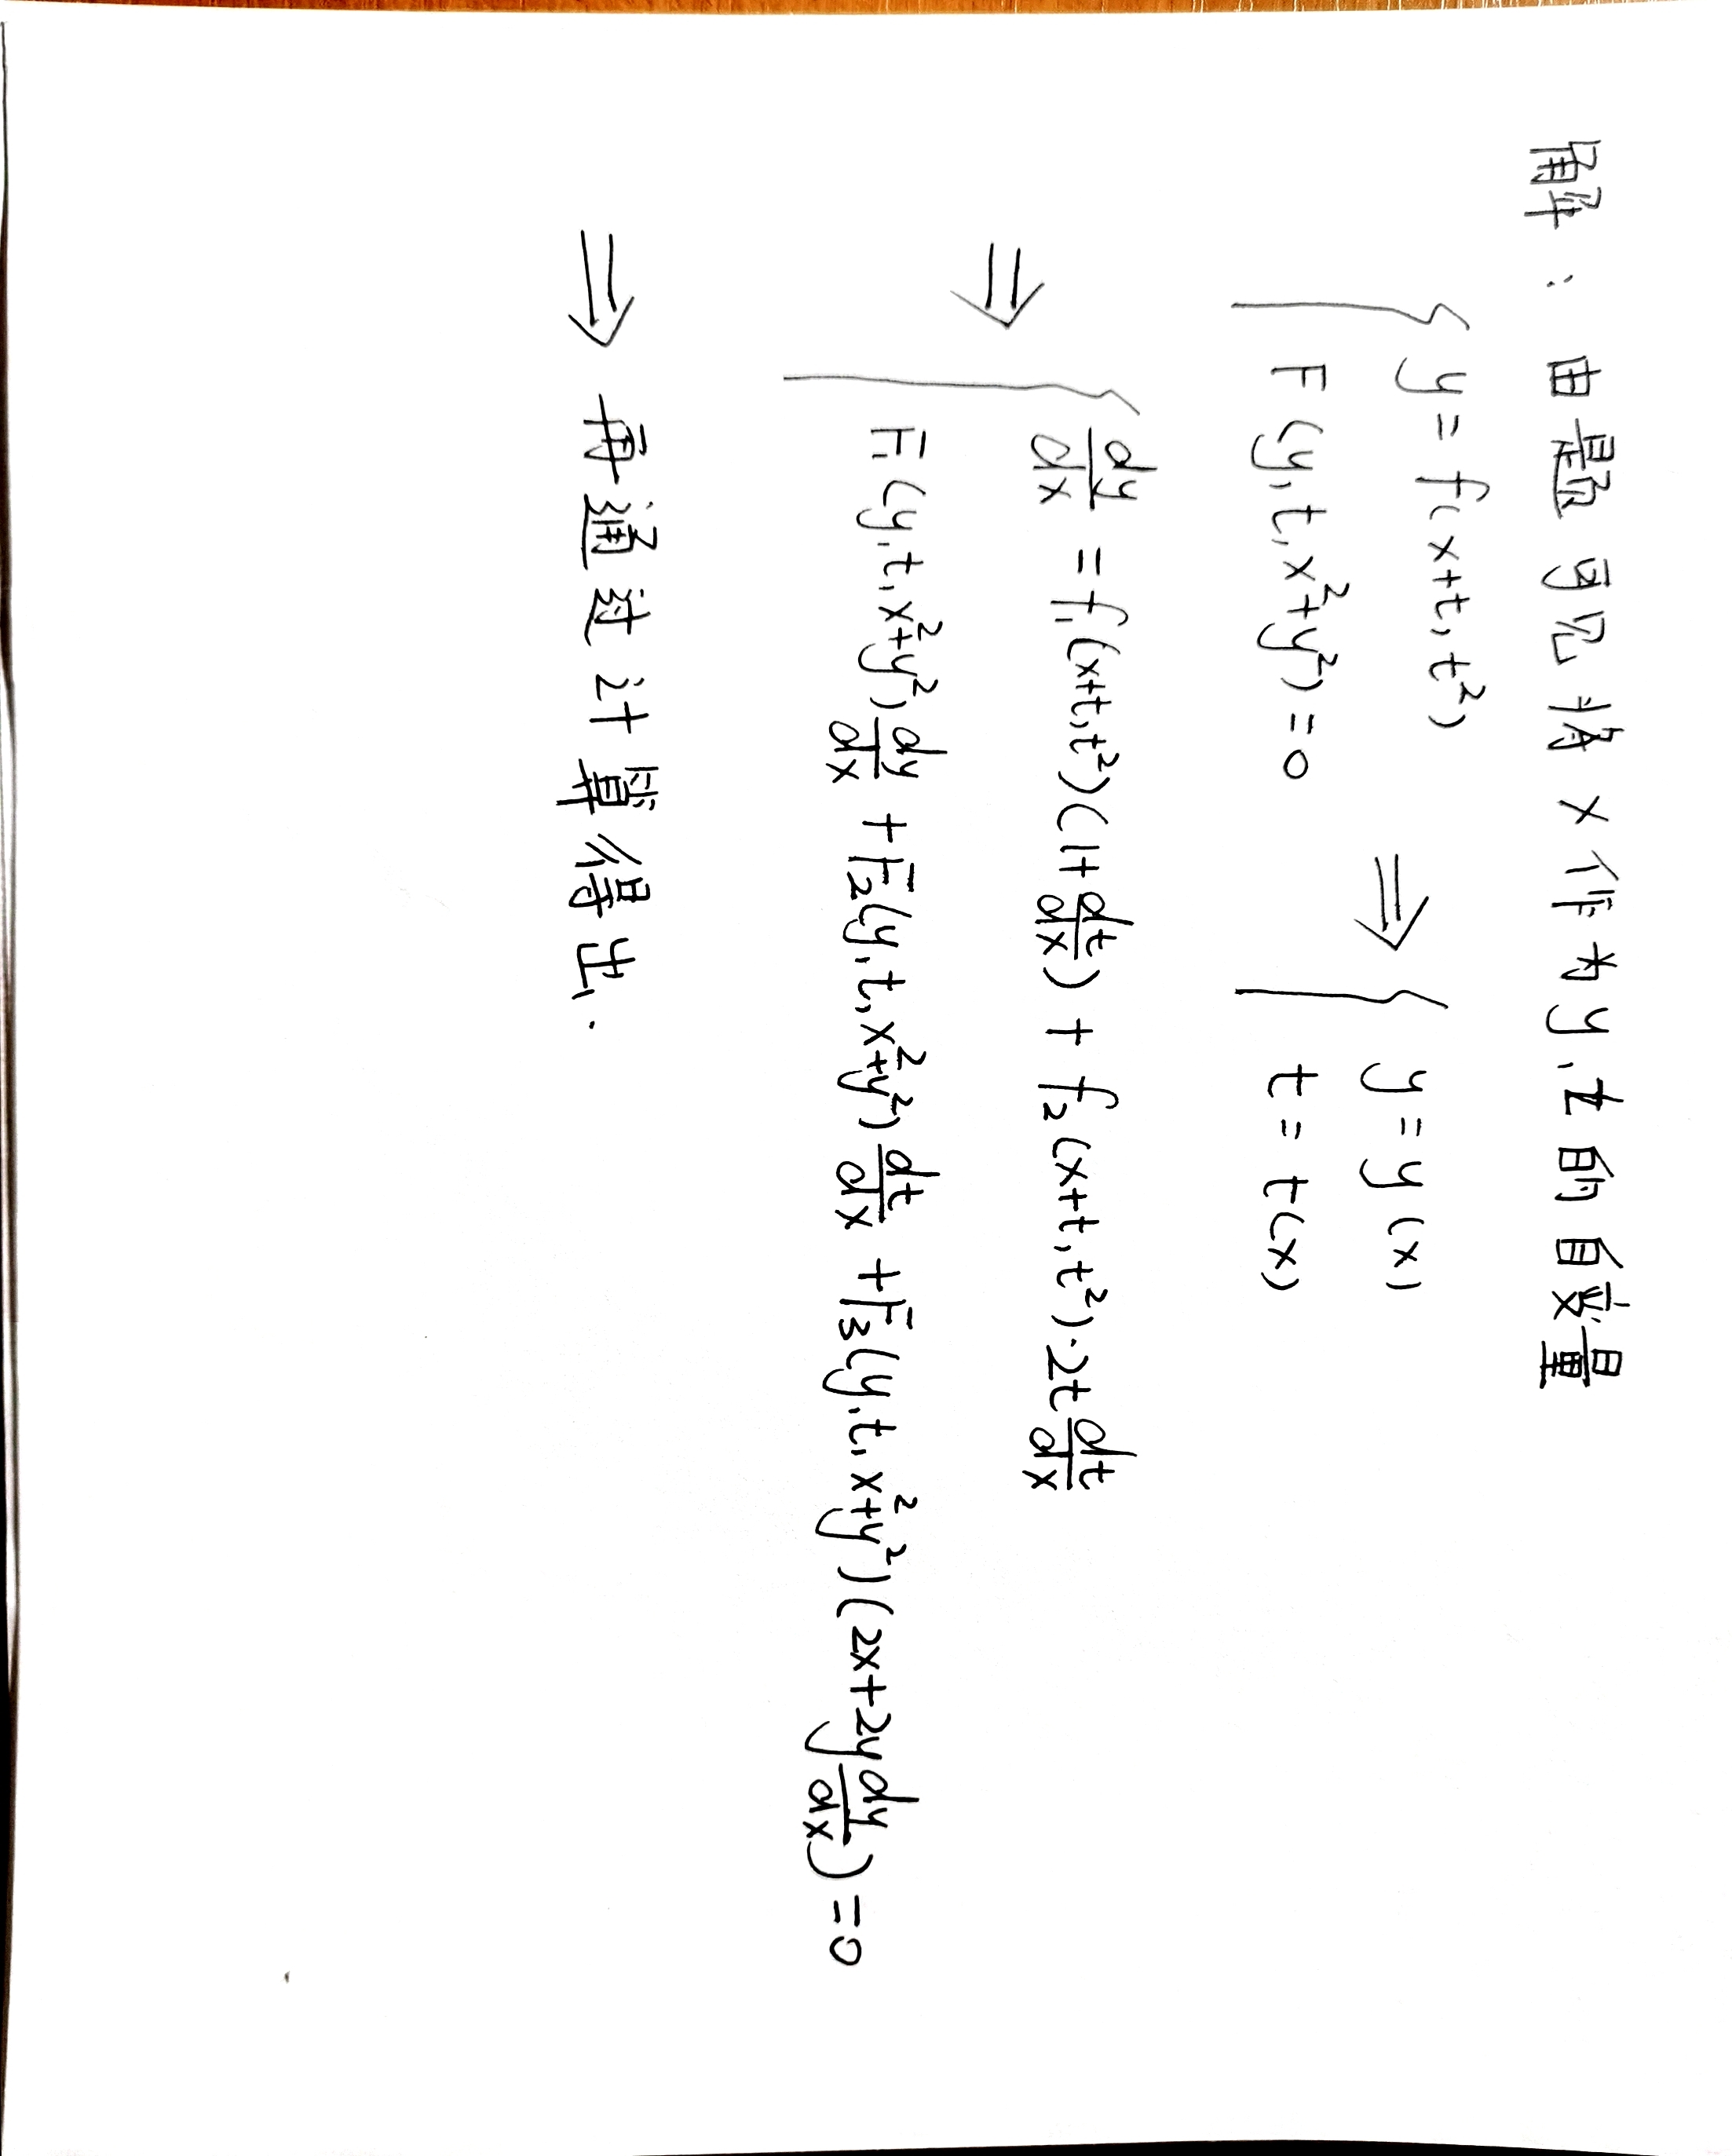 解：由题可见将 x 作为 y,t 的自变量
{ y = f(x+t, t²)
F(y, t, x²+y²) = 0
⇒ { y = y(x)
t = t(x)
⇒ { dy/dx = f₁(x+t, t²)(1+dt/dx) + f₂(x+t, t²)·2t dt/dx
F₁(y, t, x²+y²) dy/dx + F₂(y, t, x²+y²) dt/dx + F₃(y, t, x²+y²)(2x+2y dy/dx) = 0
⇒ 再通过计算得出.